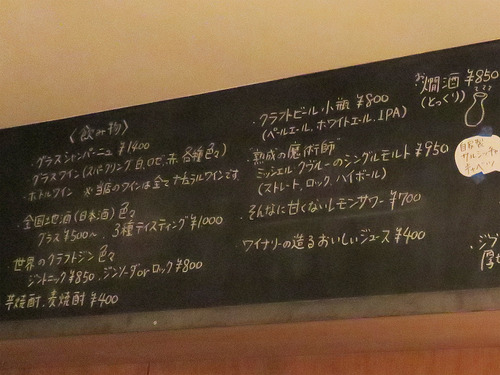 〈飲み物〉
・グラスシャンパーニュ ¥1400
・グラスワイン(スパークリング、白、ロゼ、赤、各種色々)
・ボトルワイン ※当店のワインは全てナチュラルワインです
全国地酒(日本酒)色々
グラス¥500〜 3種テイスティング¥1000
世界のクラフトジン色々
ジントニック¥850、ジンソーダorロック¥800
芋焼酎、麦焼酎 ¥400
・クラフトビール小瓶 ¥800
(ペールエール、ホワイトエール、IPA)
・"熟成の魔術師"
ミッシェル・クヴルーのシングルモルト ¥950
(ストレート、ロック、ハイボール)
・そんなに甘くないレモンサワー ¥700
ワイナリーの造るおいしいジュース ¥400
お燗酒 ¥850
(とっくり)
自家製
キャベツ
・ジブ
厚